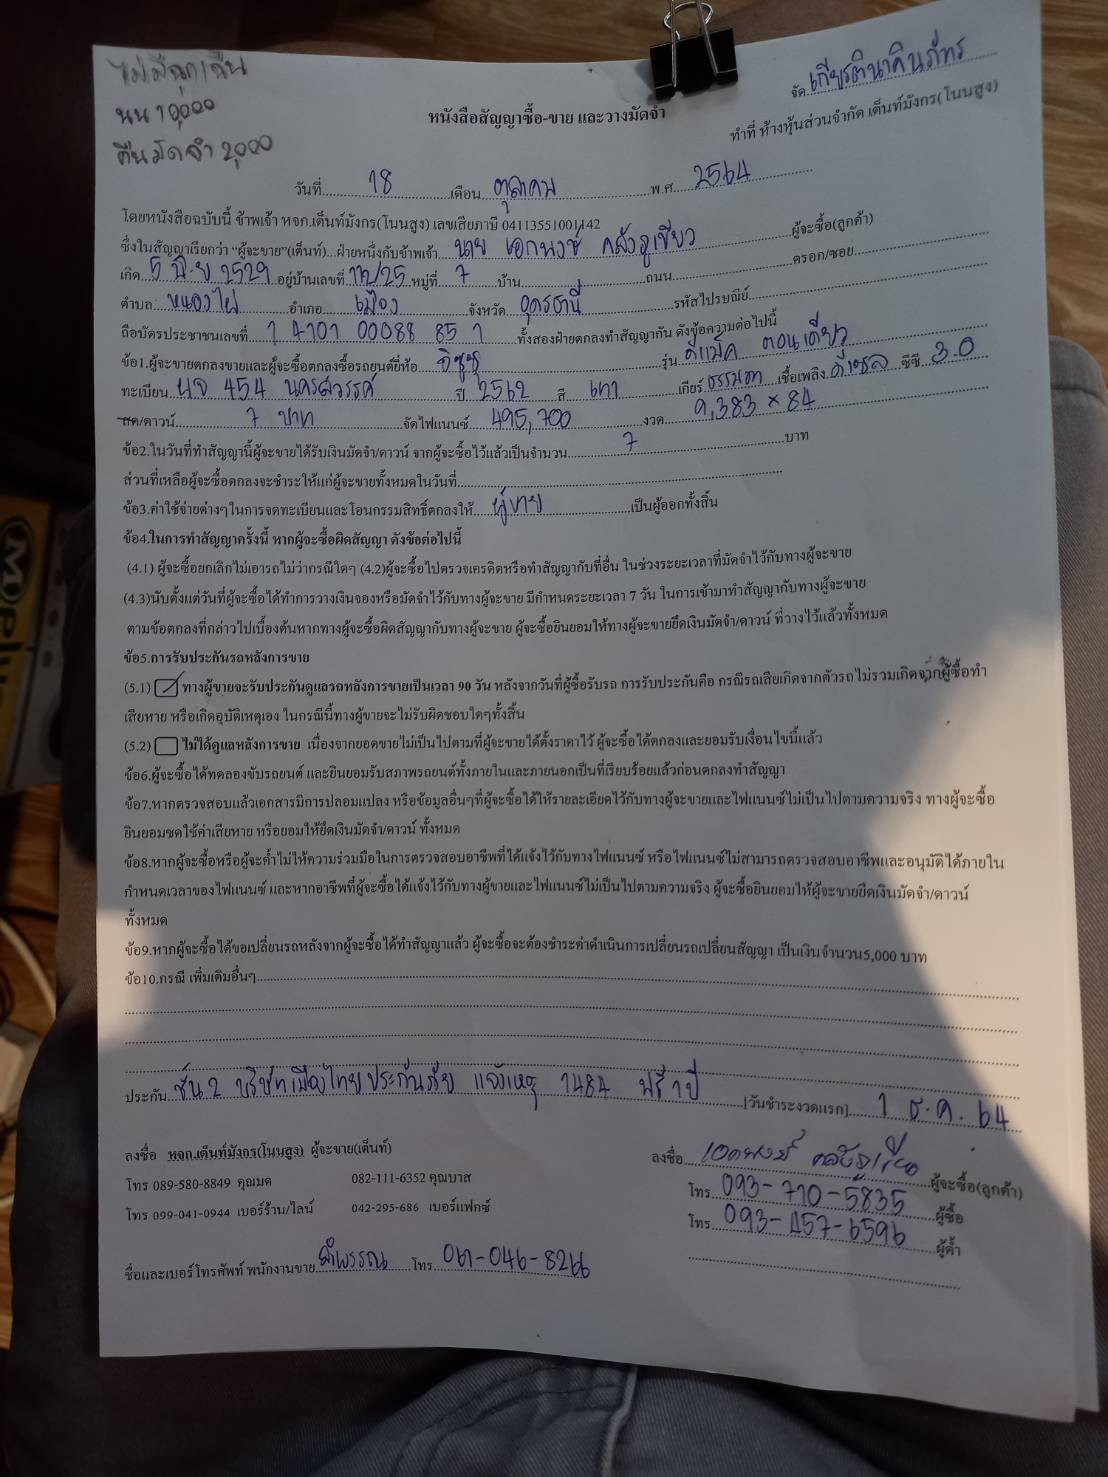 ไม่มีฉุกเฉิน
นน 10,000
คืนมัดจำ 2,000
จัด เกียรตินาคินภัทร
หนังสือสัญญาซื้อ-ขาย และวางมัดจำ
ทำที่ ห้างหุ้นส่วนจำกัด เต็นท์มังกร(โนนสูง)
วันที่ 18 เดือน ตุลาคม พ.ศ. 2564
โดยหนังสือฉบับนี้ ข้าพเจ้า หจก.เต็นท์มังกร(โนนสูง) เลขเสียภาษี 04113551001142
ซึ่งในสัญญาเรียกว่า "ผู้จะขาย"(เต็นท์)...ฝ่ายหนึ่งกับข้าพเจ้า นาย เอกพงษ์ คลังภูเขียว ผู้จะซื้อ(ลูกค้า)
เกิด 5 มิ.ย 2529 อยู่บ้านเลขที่ 112/25 หมู่ที่ 7 บ้าน ถนน ตรอก/ซอย
ตำบล หนองไผ่ อำเภอ เมือง จังหวัด อุดรธานี รหัสไปรษณีย์
ถือบัตรประชาชนเลขที่ 1 4101 00088 85 1 ทั้งสองฝ่ายตกลงทำสัญญากัน ดังข้อความต่อไปนี้
ข้อ1.ผู้จะขายตกลงขายและผู้จะซื้อตกลงซื้อรถยนต์ยี่ห้อ อีซูซุ รุ่น ดีแม็ค ตอนเดียว
ทะเบียน ผจ 454 นครสวรรค์ ปี 2562 สี เทา เกียร์ ธรรมดา เชื้อเพลิง ดีเซล ซีซี 3.0
สด/ดาวน์ 7 บาท จัดไฟแนนซ์ 495,700 งวด 9,383 × 84
ข้อ2.ในวันที่ทำสัญญานี้ผู้จะขายได้รับเงินมัดจำ/ดาวน์ จากผู้จะซื้อไว้แล้วเป็นจำนวน 7 บาท
ส่วนที่เหลือผู้จะซื้อตกลงจะชำระให้แก่ผู้จะขายทั้งหมดในวันที่
ข้อ3.ค่าใช้จ่ายต่างๆในการจดทะเบียนและโอนกรรมสิทธิ์ตกลงให้ ผู้ขาย เป็นผู้ออกทั้งสิ้น
ข้อ4.ในการทำสัญญาครั้งนี้ หากผู้จะซื้อผิดสัญญา ดังข้อต่อไปนี้
(4.1) ผู้จะซื้อยกเลิกไม่เอารถไม่ว่ากรณีใดๆ (4.2)ผู้จะซื้อไปตรวจเครดิตหรือทำสัญญากับที่อื่น ในช่วงระยะเวลาที่มัดจำไว้กับทางผู้จะขาย
(4.3)นับตั้งแต่วันที่ผู้จะซื้อได้ทำการวางเงินจองหรือมัดจำไว้กับทางผู้จะขาย มีกำหนดระยะเวลา 7 วัน ในการเข้ามาทำสัญญากับทางผู้จะขาย
ตามข้อตกลงที่กล่าวไปเบื้องต้นหากทางผู้จะซื้อผิดสัญญากับทางผู้จะขาย ผู้จะซื้อยินยอมให้ทางผู้จะขายยึดเงินมัดจำ/ดาวน์ ที่วางไว้แล้วทั้งหมด
ข้อ5.การรับประกันรถหลังการขาย
(5.1) ทางผู้ขายจะรับประกันดูแลรถหลังการขายเป็นเวลา 90 วัน หลังจากวันที่ผู้ซื้อรับรถ การรับประกันคือ กรณีรถเสียเกิดจากตัวรถไม่รวมเกิดจากผู้ซื้อทำ
เสียหาย หรือเกิดอุบัติเหตุเอง ในกรณีนี้ทางผู้ขายจะไม่รับผิดชอบใดๆทั้งสิ้น
(5.2) ไม่ได้ดูแลหลังการขาย เนื่องจากยอดขายไม่เป็นไปตามที่ผู้จะขายได้ตั้งราคาไว้ ผู้จะซื้อได้ตกลงและยอมรับเงื่อนไขนี้แล้ว
ข้อ6.ผู้จะซื้อได้ทดลองขับรถยนต์ และยินยอมรับสภาพรถยนต์ทั้งภายในและภายนอกเป็นที่เรียบร้อยแล้วก่อนตกลงทำสัญญา
ข้อ7.หากตรวจสอบแล้วเอกสารมีการปลอมแปลง หรือข้อมูลอื่นๆที่ผู้จะซื้อได้ให้รายละเอียดไว้กับทางผู้จะขายและไฟแนนซ์ไม่เป็นไปตามความจริง ทางผู้จะซื้อ
ยินยอมชดใช้ค่าเสียหาย หรือยอมให้ยึดเงินมัดจำ/ดาวน์ ทั้งหมด
ข้อ8.หากผู้จะซื้อหรือผู้จะค้ำไม่ให้ความร่วมมือในการตรวจสอบอาชีพที่ได้แจ้งไว้กับทางไฟแนนซ์ หรือไฟแนนซ์ไม่สามารถตรวจสอบอาชีพและอนุมัติได้ภายใน
กำหนดเวลาของไฟแนนซ์ และหากอาชีพที่ผู้จะซื้อได้แจ้งไว้กับทางผู้ขายและไฟแนนซ์ไม่เป็นไปตามความจริง ผู้จะซื้อยินยอมให้ผู้จะขายยึดเงินมัดจำ/ดาวน์
ทั้งหมด
ข้อ9.หากผู้จะซื้อได้ขอเปลี่ยนรถหลังจากผู้จะซื้อได้ทำสัญญาแล้ว ผู้จะซื้อจะต้องชำระค่าดำเนินการเปลี่ยนรถเปลี่ยนสัญญา เป็นเงินจำนวน5,000 บาท
ข้อ10.กรณี เพิ่มเติมอื่นๆ
ประกัน ชั้น 2 บริษัท เมืองไทยประกันภัย แจ้งเหตุ 1484 ฟรี 1 ปี [วันชำระงวดแรก] 1 ธ.ค. 64
ลงชื่อ หจก.เต็นท์มังกร(โนนสูง) ผู้จะขาย(เต็นท์)
ลงชื่อ เอกพงษ์ คลังภูเขียว ผู้จะซื้อ(ลูกค้า)
โทร 089-580-8849 คุณมด 082-111-6352 คุณบาส
โทร 093-710-5835 ผู้ซื้อ
โทร 099-041-0944 เบอร์ร้าน/ไลน์ 042-295-686 เบอร์แฟกซ์
โทร 093-457-6596 ผู้ค้ำ
ชื่อและเบอร์โทรศัพท์ พนักงานขาย ลำพรรณ โทร 061-046-8266